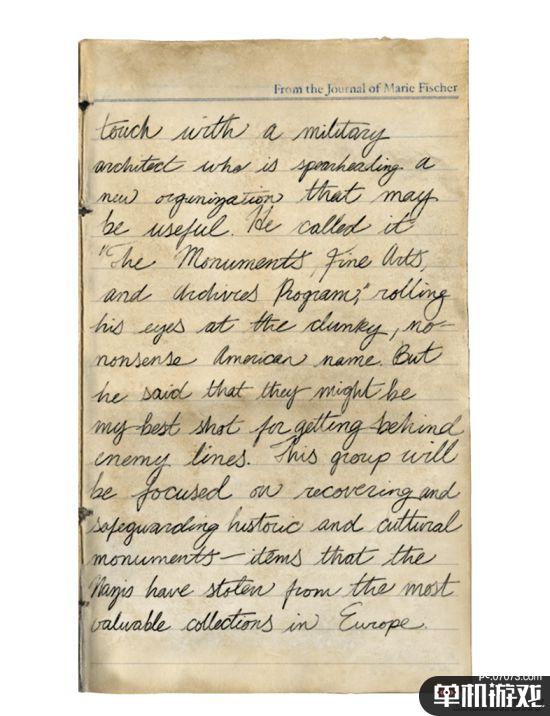 From the Journal of Marie Fischer
touch with a military
architect who is spearheading a
new organization that may
be useful. He called it
"The Monuments, Fine Arts,
and Archives Program," rolling
his eyes at the clunky, no-
nonsense American name. But
he said that they might be
my best shot for getting behind
enemy lines. This group will
be focused on recovering and
safeguarding historic and cultural
monuments—items that the
Nazis have stolen from the most
valuable collections in Europe.
pc.07073.com
单机游戏